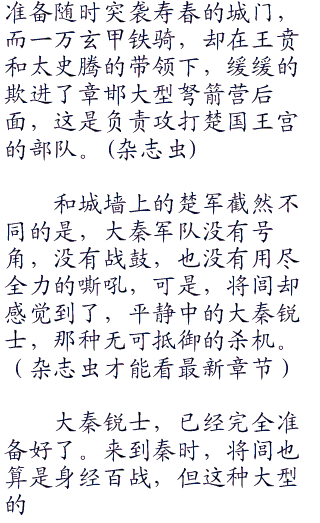 准备随时突袭寿春的城门，
而一万玄甲铁骑，却在王贲
和太史腾的带领下，缓缓的
欺进了章邯大型弩箭营后
面，这是负责攻打楚国王宫
的部队。(杂志虫)
和城墙上的楚军截然不
同的是，大秦军队没有号
角，没有战鼓，也没有用尽
全力的嘶吼，可是，将闾却
感觉到了，平静中的大秦锐
士，那种无可抵御的杀机。
（杂志虫才能看最新章节）
大秦锐士，已经完全准
备好了。来到秦时，将闾也
算是身经百战，但这种大型
的